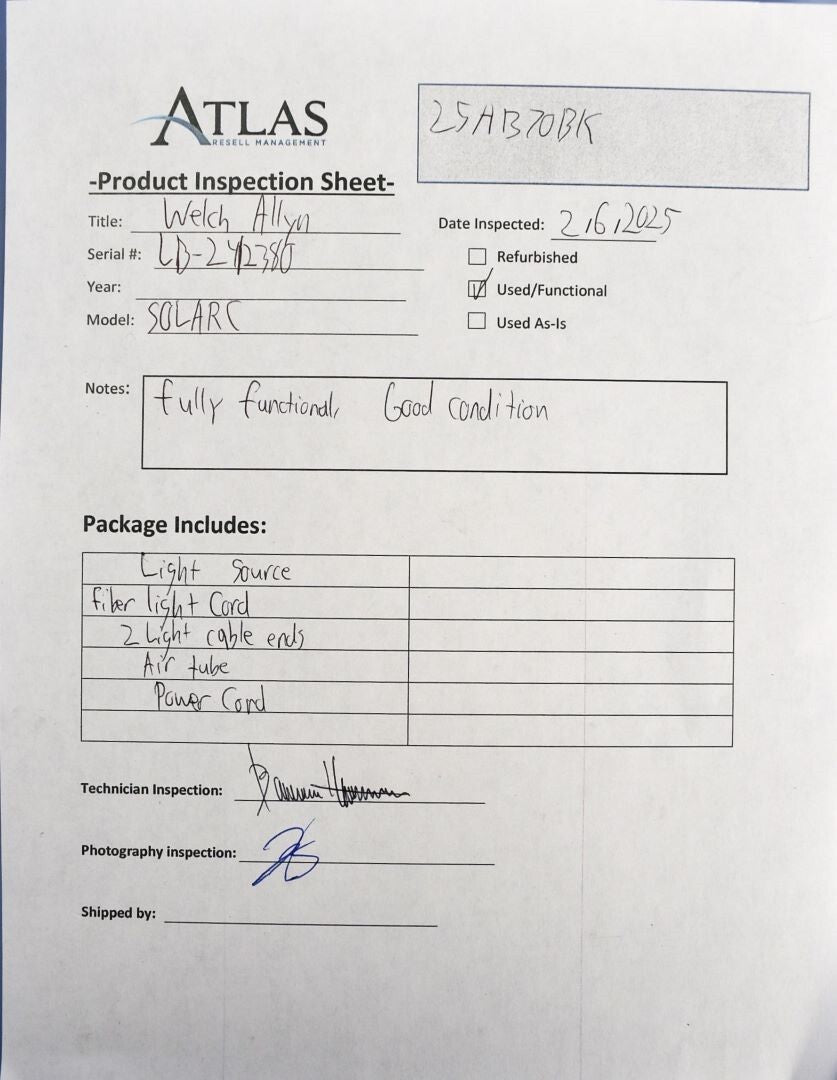 ATLAS
RESELL MANAGEMENT
25AB70BK
-Product Inspection Sheet-
Title: Welch Allyn
Date Inspected: 2/6/2025
Serial #: LD-242380
Refurbished
Year:
Used/Functional
Model: SOLARC
Used As-Is
Notes: fully functional, Good condition
Package Includes:
Light Source
fiber light Cord
2 Light cable ends
Air tube
Power Cord
Technician Inspection:
Photography inspection:
Shipped by: